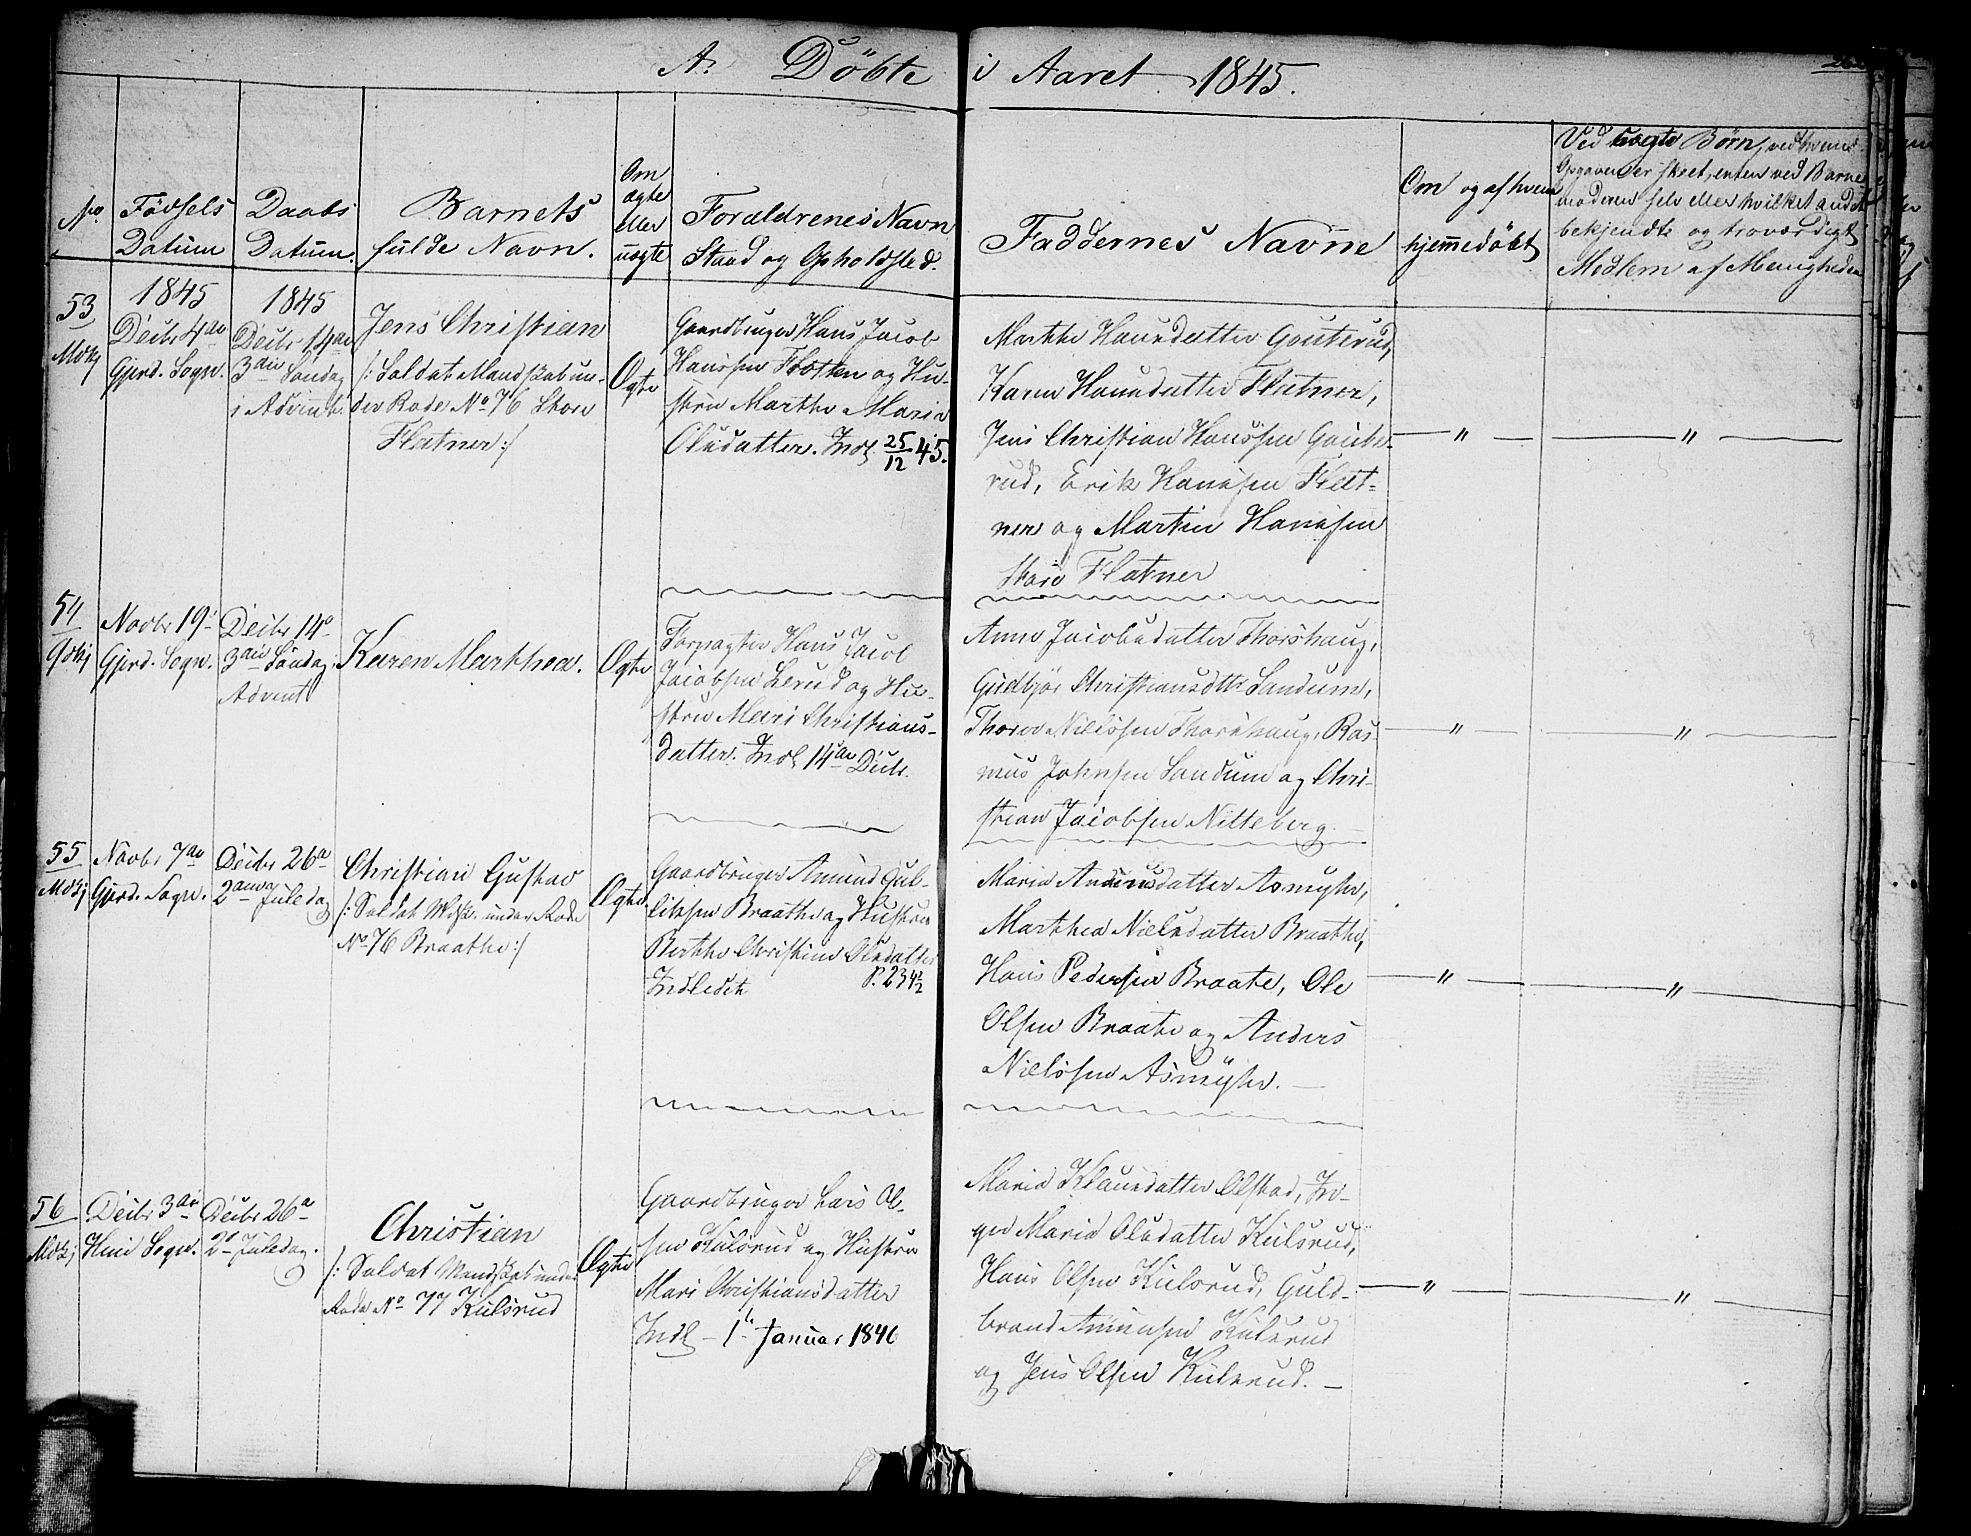 A. Döbte i Aaret 1845.
No.
Födsels
Datum
Daabs
Datum.
Barnets
fulde Navn.
Om
ægte
eller
uægte
Forældrenes Navn
Stand og Opholdsted.
Faddernes Navne
Om og af hvem
hjemmedöbt
Ved uægte Børn, ved hvem
Opgaven er skeet, enten ved Barnets
moderen selv eller hvilket andet
bekjendte og troværdigt
Medlem af Menigheden
53
Mdkj
1845
Decbr 4de
Gjerd. Sogn.
1845
Decbr 14de
3die Søndag
i Advent.
Jens Christian
/: Soldat Mandskab un-
der Rode No 76 Store
Flatner :/
Ægte
Gaardbruger Hans Jacob
Hanssen Flotten og Hu-
stru Marthe Maria
Olsdatter. Indl 25/12 45.
Marthe Hansdatter Gouterud,
Karen Hansdatter Flatner,
Jens Christian Hanssen Goute-
rud, Erik Hanssen Flat-
ner og Martin Hanssen
Store Flatner
— " —
— " —
54
Qvkj
Novbr 19
Gjerd. Sogn.
Decbr 14
3die Søndag i
Advent
Karen Marthea.
Ægte
Forpagter Hans Jacob
Jacobsen Lerud og Hu-
stru Mari Christians-
datter. Indl 14de Decbr.
Anne Jacobsdatter Thorshaug,
Gudbjør Christiansdtr Sandum,
Thorer Nielssen Thorshaug, Ras-
mus Johnsen Sandum og Chri-
stian Jacobsen Nitteberg
— " —
— " —
55
Mdkj
Novbr 7de
Gjerd. Sogn.
Decbr 26
2den Juledag
Christian Gustav
/: Soldat Mdsk. under Rode
No 76 Braathe :/
Ægte
Gaardbruger Amund Gul-
liksen Braathe og Hustru
Berthe Christine Olsdatter
Indledet P. 234 1/2
Maria Andersdatter Asmyhr,
Marthea Nielsdatter Braathe,
Hans Pedersen Braate, Ole
Olsen Braate og Anders
Nielssen Asmyhr. —
— " —
— " —
56
Mdkj
Decbr 3die
Heni Sogn.
Decbr 26
2d Juledag.
Christian
/: Soldat Mandskab under
Rode No 77 Kulsrud
Ægte
Gaardbruger Lars Ol-
sen Kulsrud og Hustru
Mari Christiansdatter
Indl — 1te Januar 1846
Maria Klausdatter Olstad, In-
ger Maria Olsdatter Kulsrud,
Hans Olsen Kulsrud, Guld-
brand Amundsen Kulsrud
og Jens Olsen Kulsrud. —
— " —
— " —